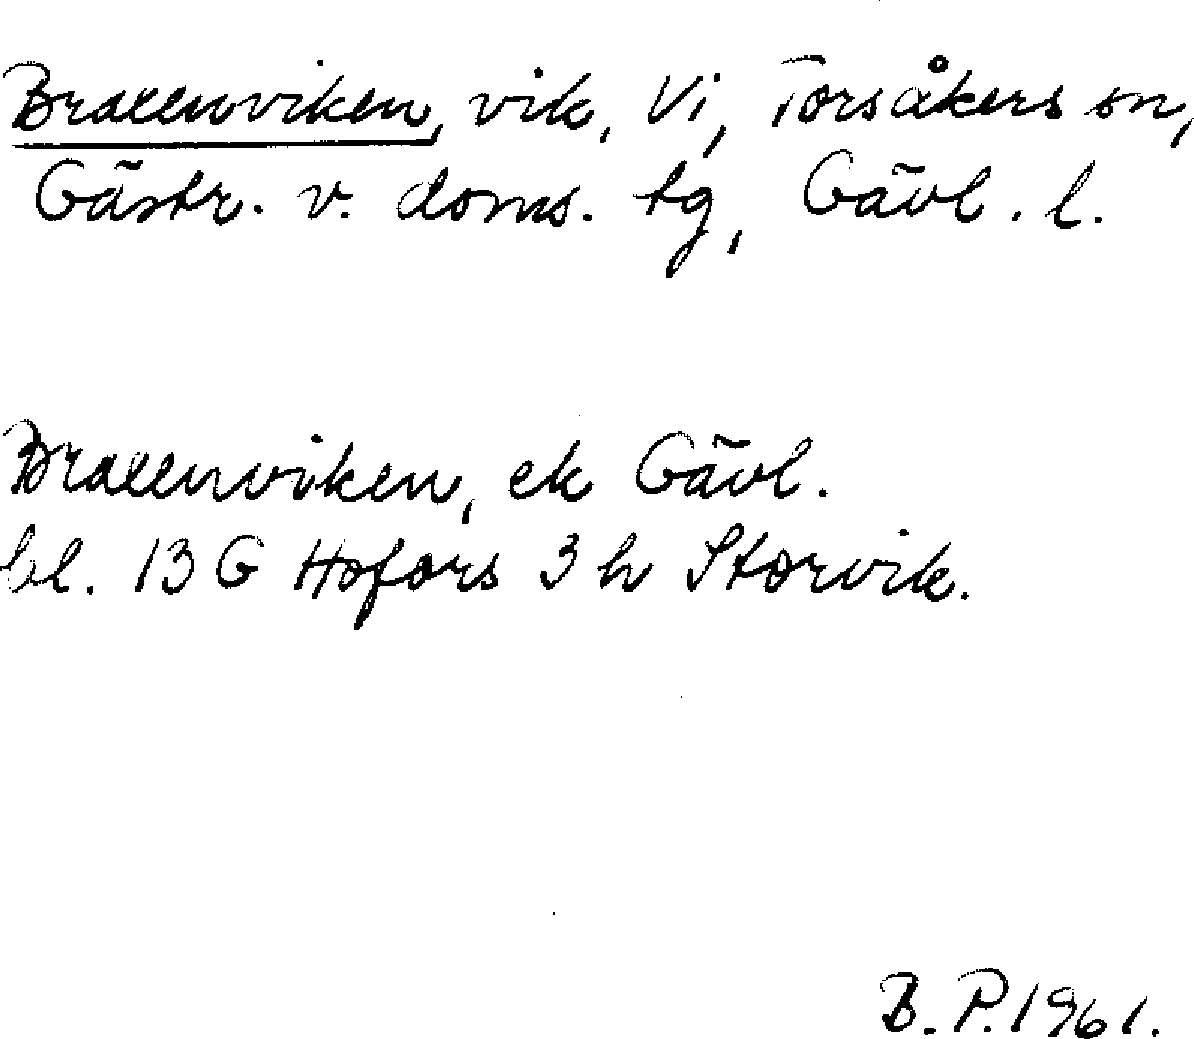 Braxenviken, vik, Vi, Torsåkers sn,
Gästr. v. doms. tg, Gävl. l.
Braxenviken, ek Gävl.
bl. 13 G Hofors 3 h Storvik.
B. P. 1961.